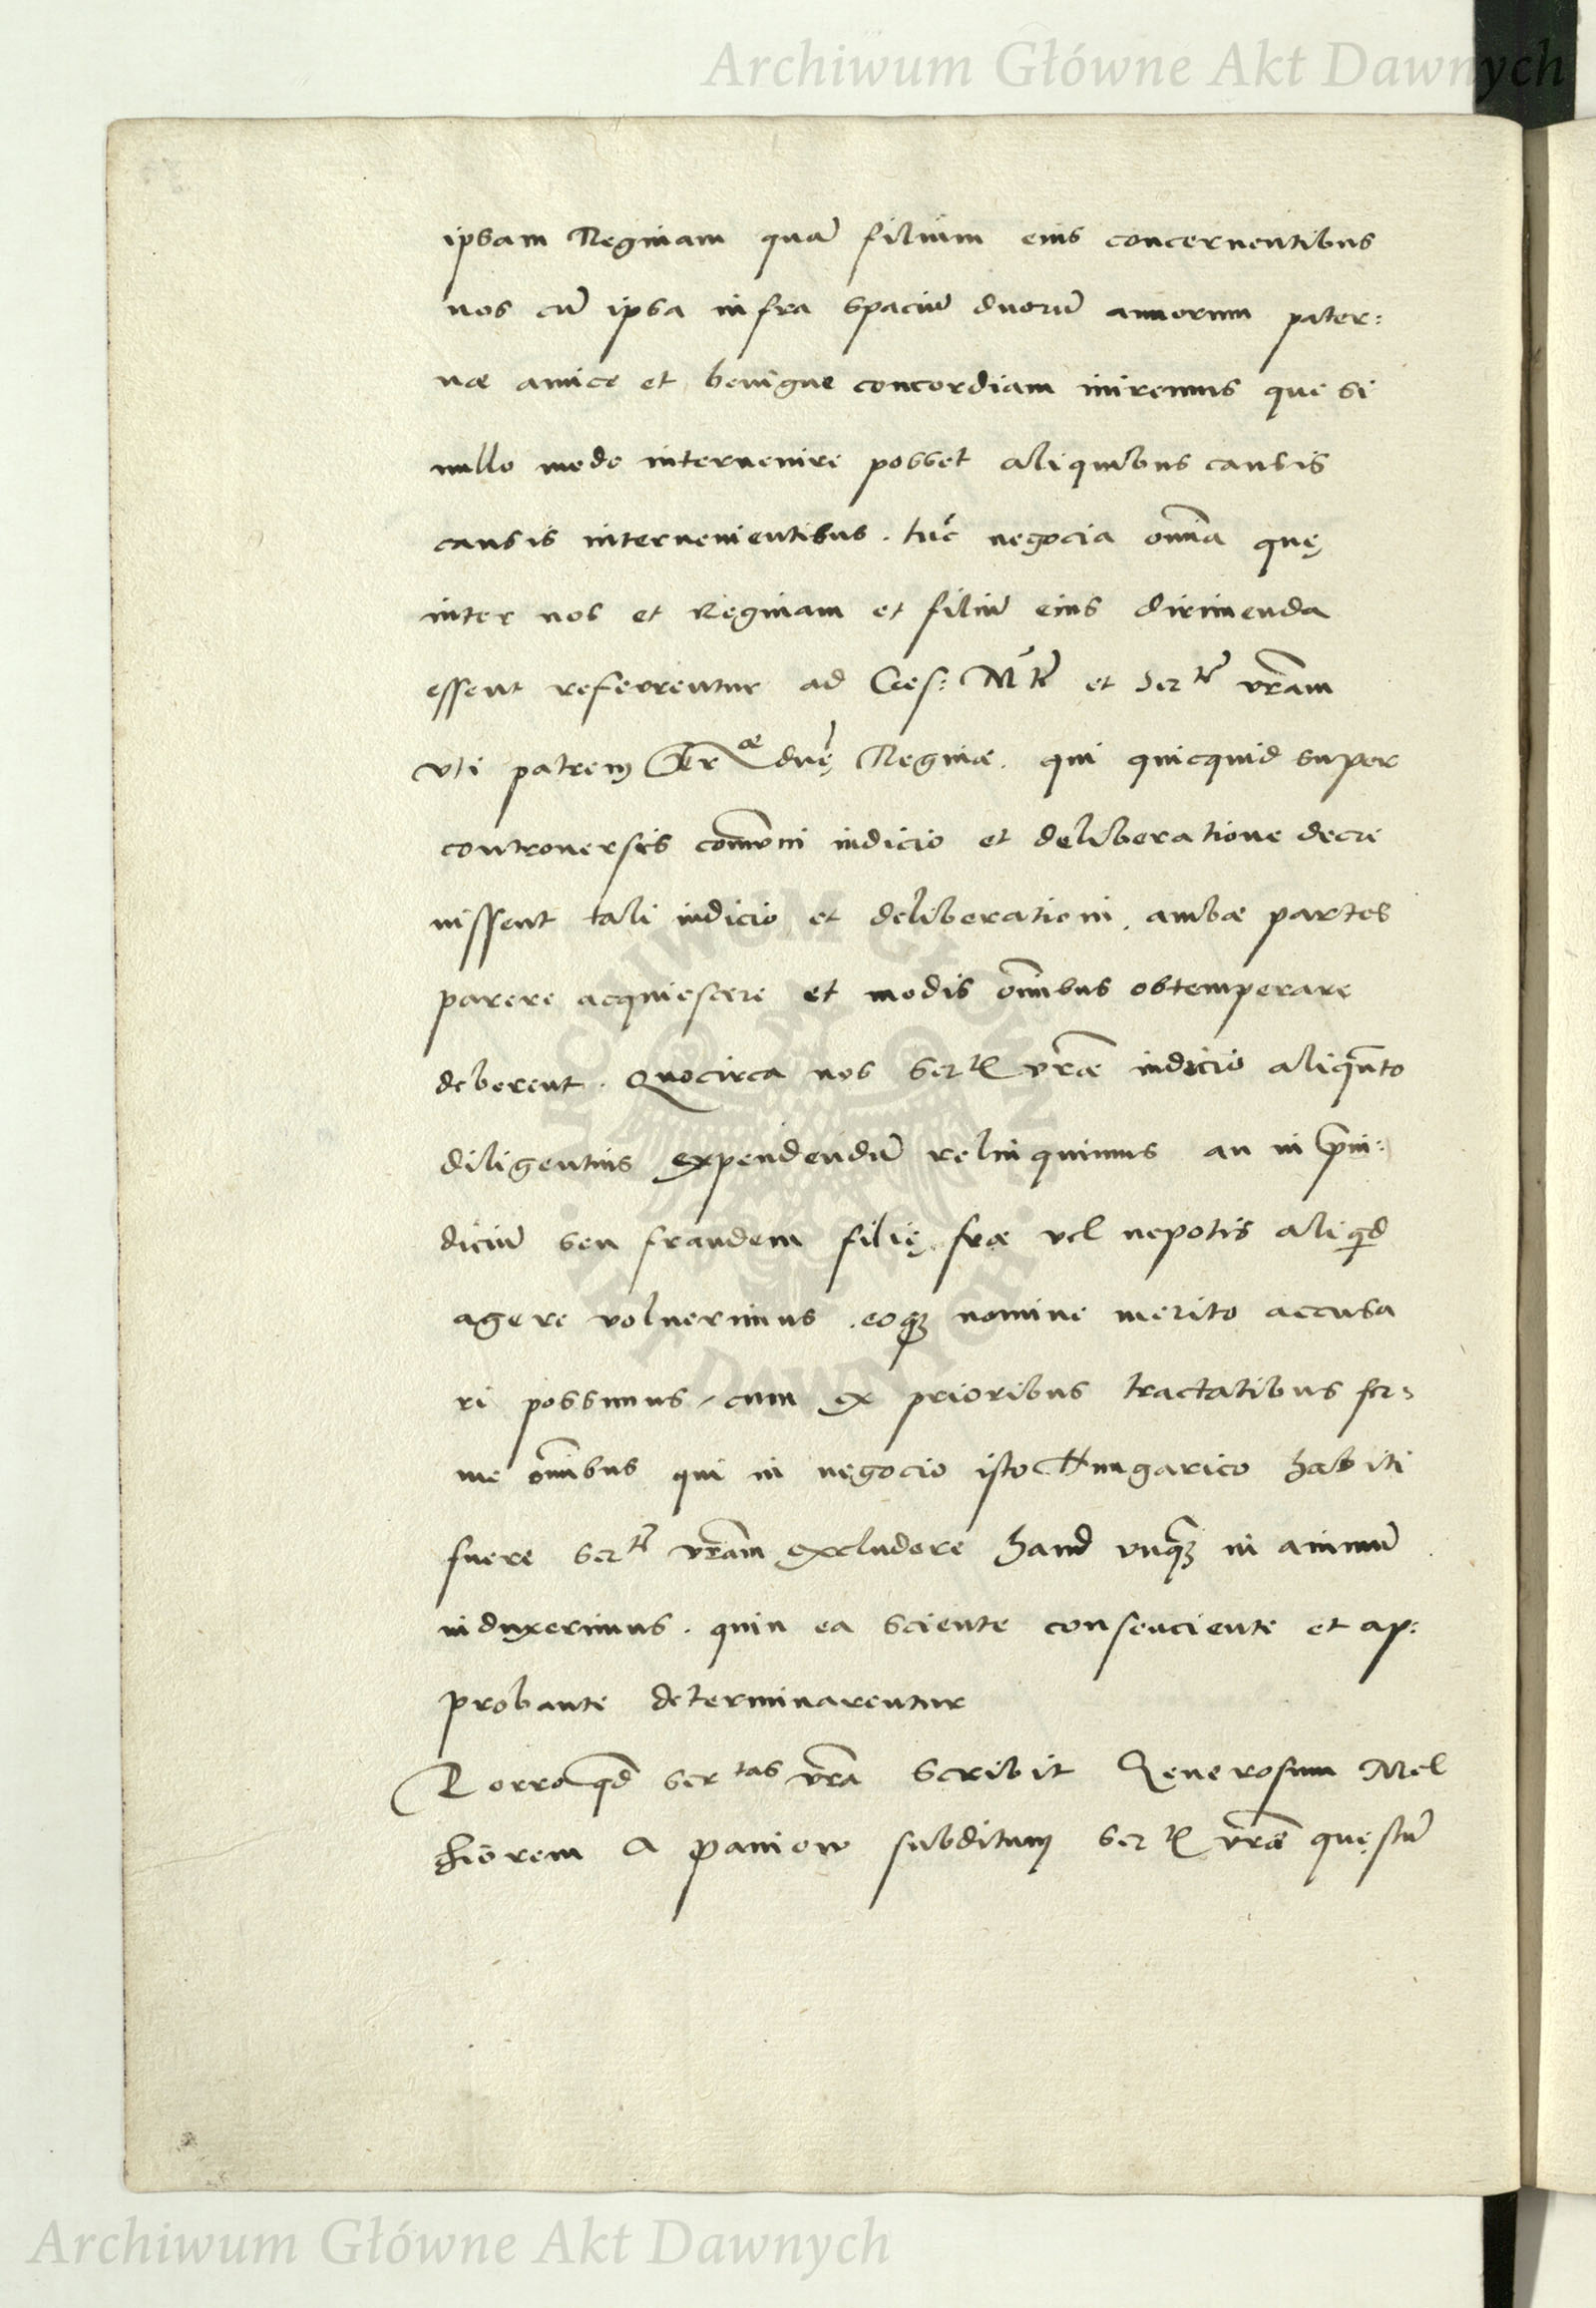 Archiwum Główne Akt Dawnych
ipsam Reginam quā filium eius concernentibus
nos cū ipsa infra spaciū duorū annorum pater:
næ amice et benigne concordiam iniremus que si
nullo modo interuenire posset aliquibus causis
causis interuenientibus. tūc negocia oīnia quę
inter nos et Reginam et filiū eius dirimenda
essent referrentur ad Cæs: M^tē et Ser^tē vr̃am
vti patrem Ser^æ dnę Reginæ. qui quicquid super
controuersis com̃uni iudicio et deliberatione decre
uissent tali iudicio et deliberationi, ambæ partes
parere acquiescere et modis om̃ibus obtemperare
deberent. Quocirca nos Ser^tis vr̃æ iudicio aliqñto
diligentius expendendū relinquimus an in p̃iu:
diciū seu fraudem filię suæ vel nepotis aliqd
agere voluerimus. eoq3 nomine merito accusa
ri possimus, cum ex prioribus tractatibus fer=
me om̃ibus qui in negocio isto Hungarico habiti
fuere Ser^tē vr̃am excludere haud vnq̃3 in animū
induxerimus. quin ea sciente consenciente et ap:
probante determinarentur
Porro qd Ser^tas vr̃a scribit Generosum Mel
chiorem a Paniow subditum Ser^tis vr̃æ questū
ARCHIWUM GŁÓWNE AKT DAWNYCH
Archiwum Główne Akt Dawnych